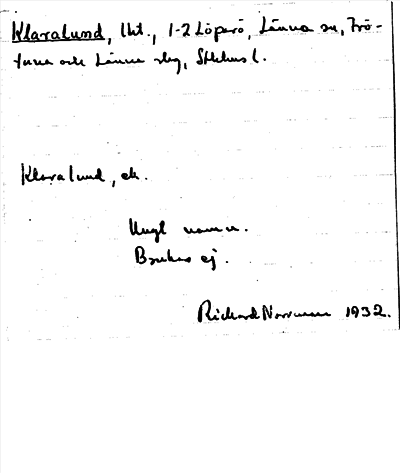 Klaralund, lht., 1-2 Löparö, Länna sn, Frö-
tuna och Länna skg, Sthlms l.
Klaralund, ek.
Ungt namn.
Brukas ej.
Richard Norrman 1932.